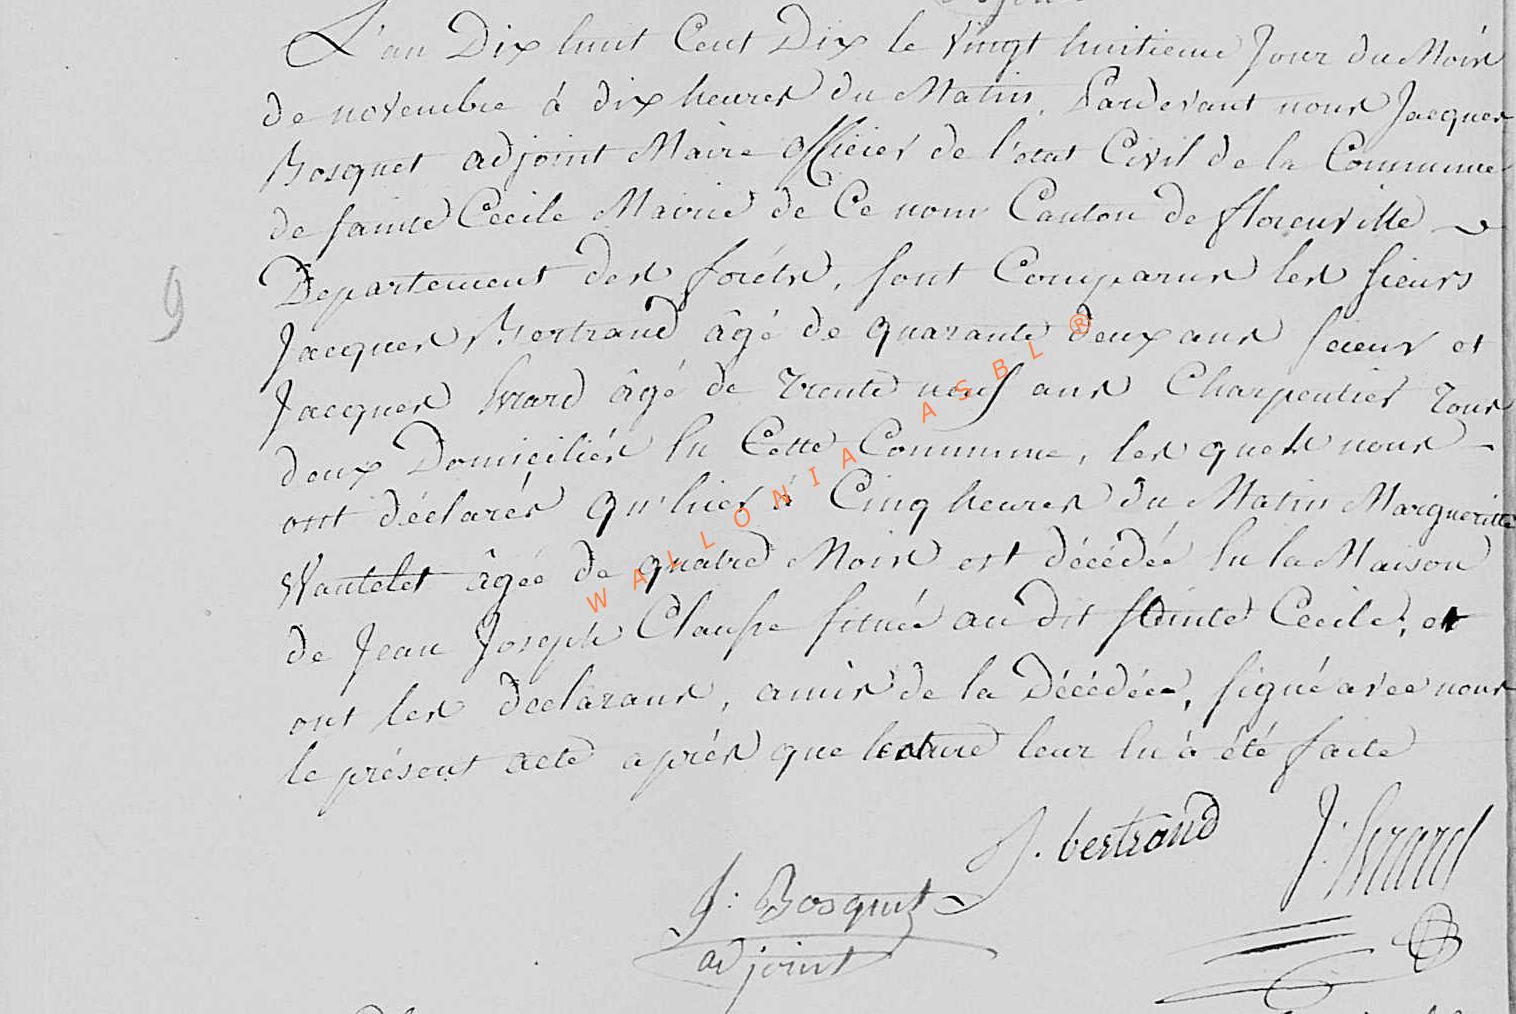 L'an Dix huit Cent Dix le vingt huitieme Jour du Mois
de novembre à dix heures du Matin, Pardevant nous Jacques
Bosquet adjoint Maire officier de l'état Civil de la Commune
de sainte Cecile Mairie de Ce nom Canton de florenville
Departement des forêts, sont Comparus les sieurs
9
Jacques Bertrand âgé de quarante deux ans scieur et
Jacques Evrard âgé de trente neuf ans Charpentier tous
deux Domiciliés En Cette Commune, les quels nous
ont déclarés qu'hier à Cinq heures du Matin Margueritte
Wautelet âgée de quatre Mois est décédée En la Maison
de Jean Joseph Clausse située au dit sainte Cecile, et
ont les declarans, amis de la Décédée, signé avec nous
le présent acte après que lecture leur En a été faite
J. bertrand J. Evrard
J: Bosquet
adjoint
WALLONIA ASBL ®